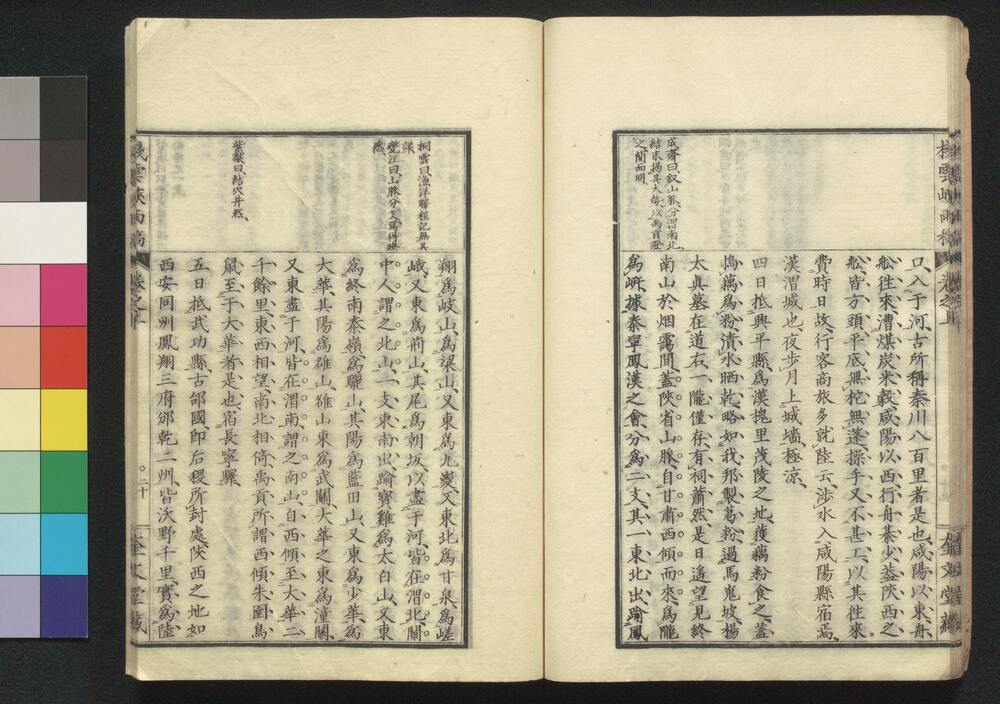 成齋曰叙山脉分渭南北
結末揭其大每以禹貢證
之簡而明
只入于河古所稱秦川八百里者是也咸陽以東舟
舩徃來漕煤炭米穀咸陽以西行舟綦少蓋陝西之
舩皆方頭平底無柁無蓬操手又不甚工以其徃來
費時日故行客商旅多就陸云涉水入咸陽縣宿焉
漢渭城也夜步月上城墻極涼
四日抵興平縣爲漢槐里茂陵之地獲藕粉食之蓋
搗藕爲粉漬水晒乾略如我邦製葛粉過馬嵬坡楊
太真墓在道右一隴僅存有祠蕭然是日遙望見終
南山於烟靄間蓋陝省山脉自甘肅西傾而來爲隴
爲岍據秦寧鳳漢之會分爲二支其一東北出踰鳳
桐雲曰漁洋驛程記無其
詳
甕江曰山脉分支寫得瞭
然
紫巖曰結穴井然
翔爲岐山爲梁山又東爲九嵏又東北爲甘泉爲嵯
峨又東爲荊山其尾爲朝坂以盡于河皆在渭北關
中人謂之北山一支東南出踰寶雞爲太白山又東
爲終南秦嶺爲驪山其陽爲藍田山又東爲少華爲
大華其陽爲雒山雒山東爲武關大華之東爲潼關
又東盡于河皆在渭南謂之南山自西傾至大華二
千餘里東西相望南北相倚禹貢所謂西傾朱圉鳥
鼠至于大華者是也宿長寧驛
五日抵武功縣古邰國即后稷所封處陝西之地如
西安同州鳳翔三府邠乾二州皆沃野千里實爲陸
棧雲峽雨稿
卷之上
二十